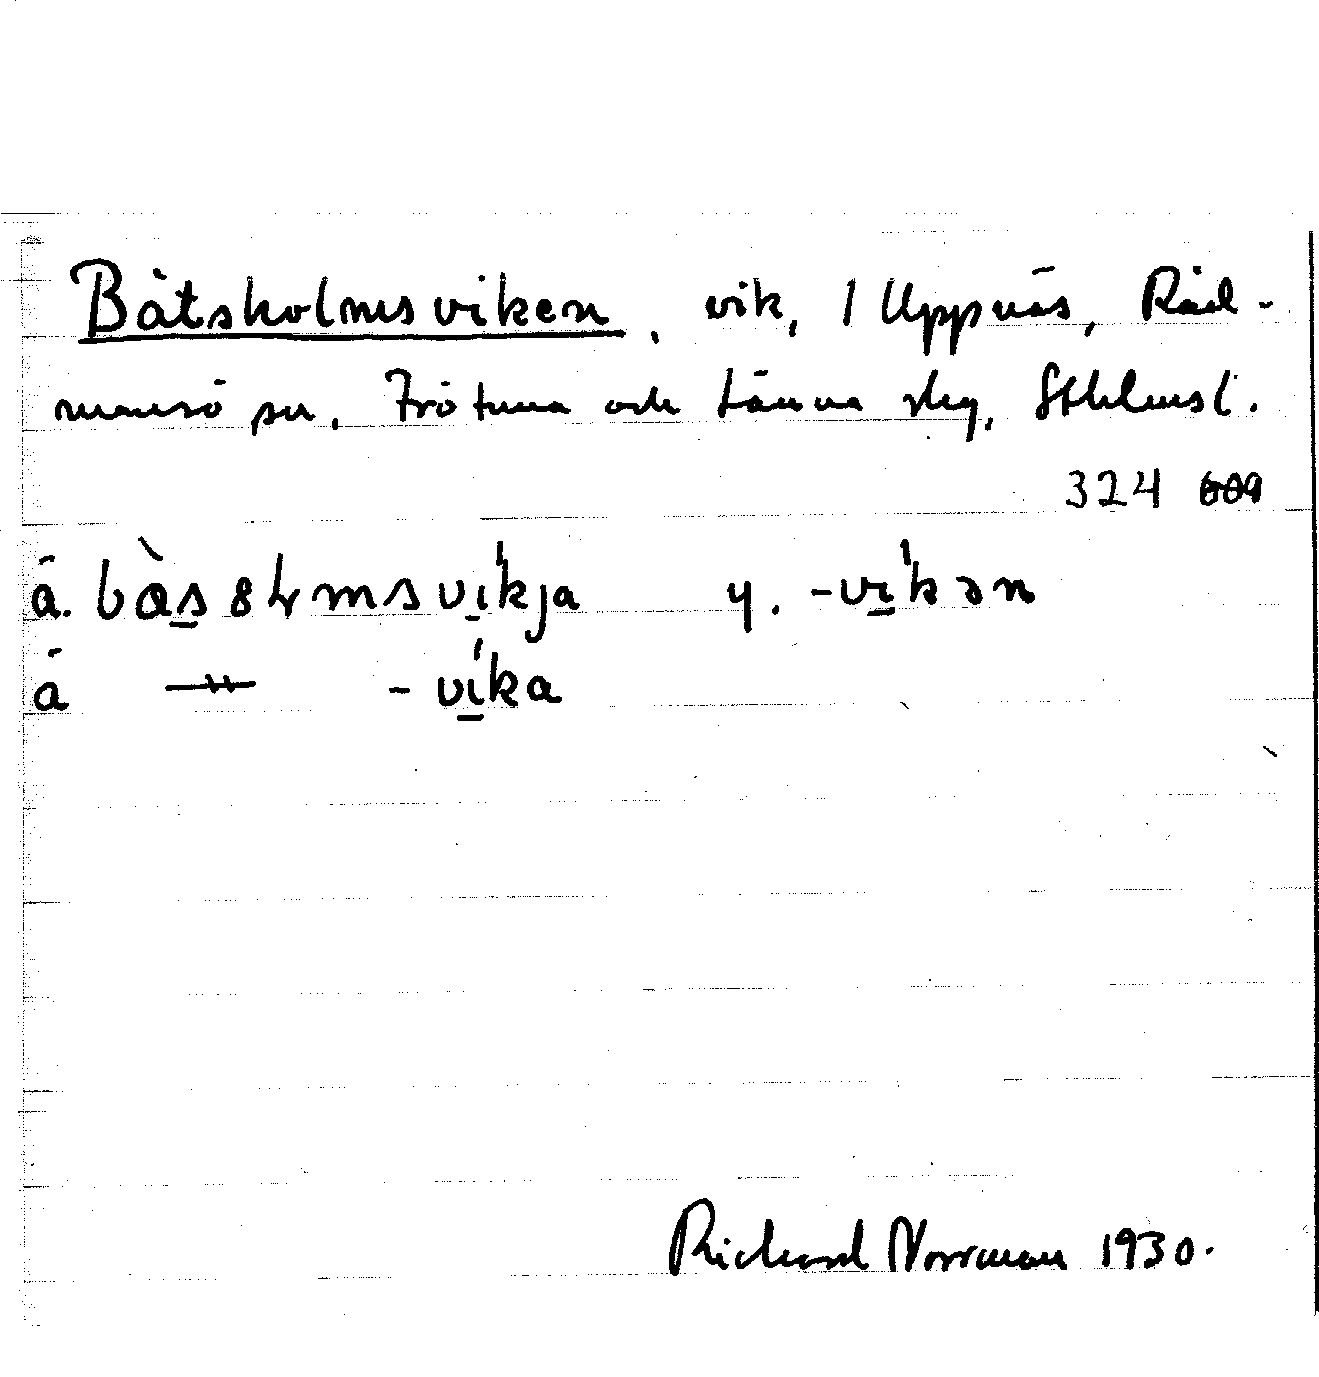 Båtsholmsviken, vik, 1 Uppnäs, Råd-
mansö sn. Frötuna och Länna slg, Sthlmsl.
324
ä. bàs8lmsvíkja y. -víkən
ä –"– -víka
Richard Norrman 1930.